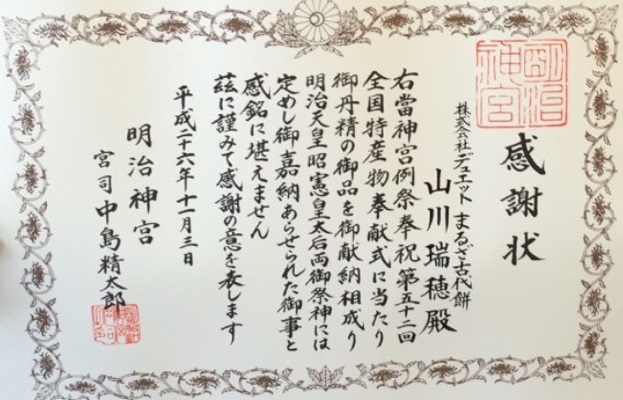 感謝状
株式会社デュエット まるざ古代餅
山川瑞穂殿
右當神宮例祭奉祝第五十二回
全国特産物奉献式に当たり
御丹精の御品を御献納相成り
明治天皇昭憲皇太后両御祭神には
定めし御嘉納あらせられた御事と
感銘に堪えません
茲に謹みて感謝の意を表します
平成二十六年十一月三日
明治神宮
宮司 中島精太郎
明治神宮